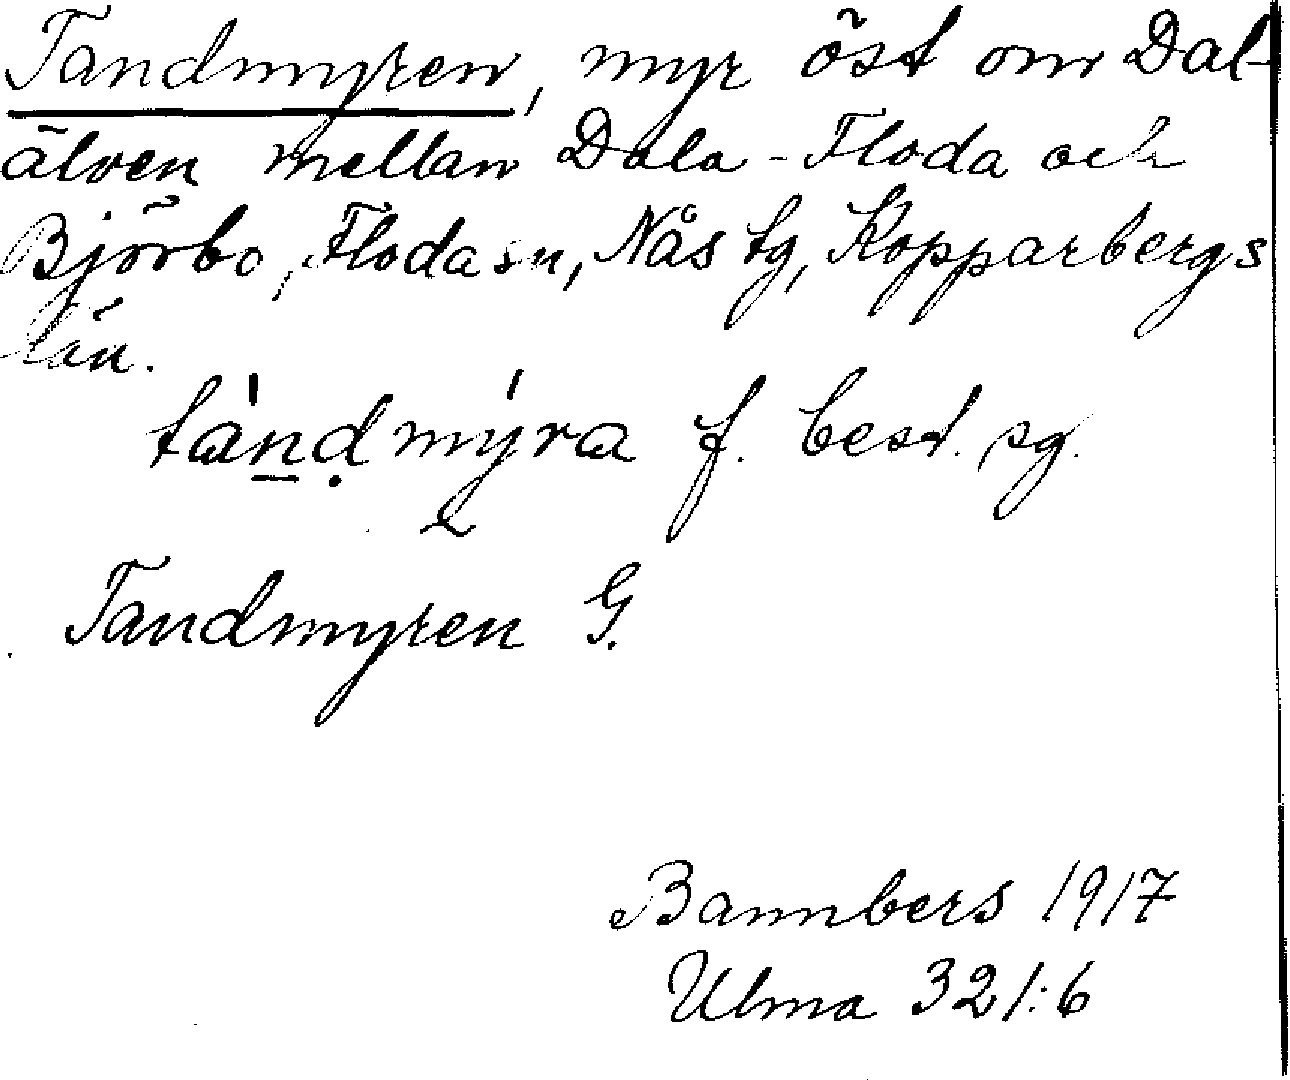 Tandmyren, myr öst om Dal-
älven mellan Dala-Floda och
Björbo, Floda sn, Nås tg, Kopparbergs
län.
ta̍n̲ḍmýra f. best. sg.
Tandmyren G.
Bannbers 1917
Ulma 321:6